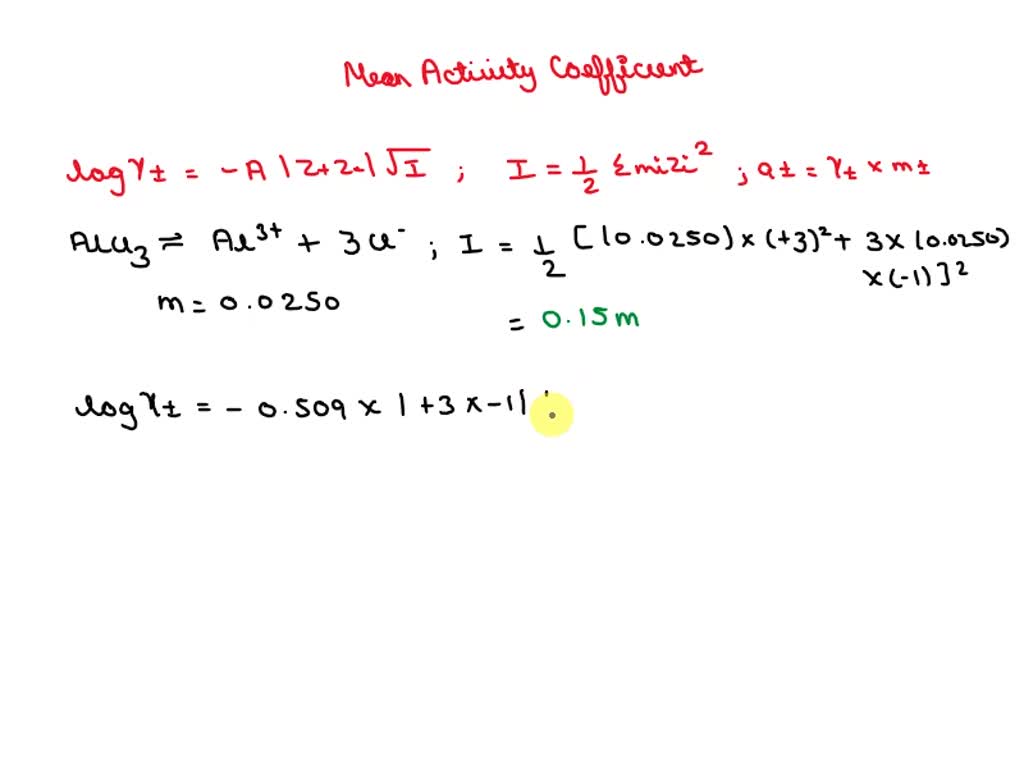 Mean Activity Coefficient
log γ± = -A |Z+Z-| √I ; I = 1/2 Σmizi² ; a± = γ± × m±
AlCl₃ ⇌ Al³⁺ + 3Cl⁻ ; I = 1/2 [(0.0250) × (+3)² + 3 × (0.0250)
× (-1)]²
m = 0.0250
= 0.15m
log γ± = - 0.509 × | +3 × -1|